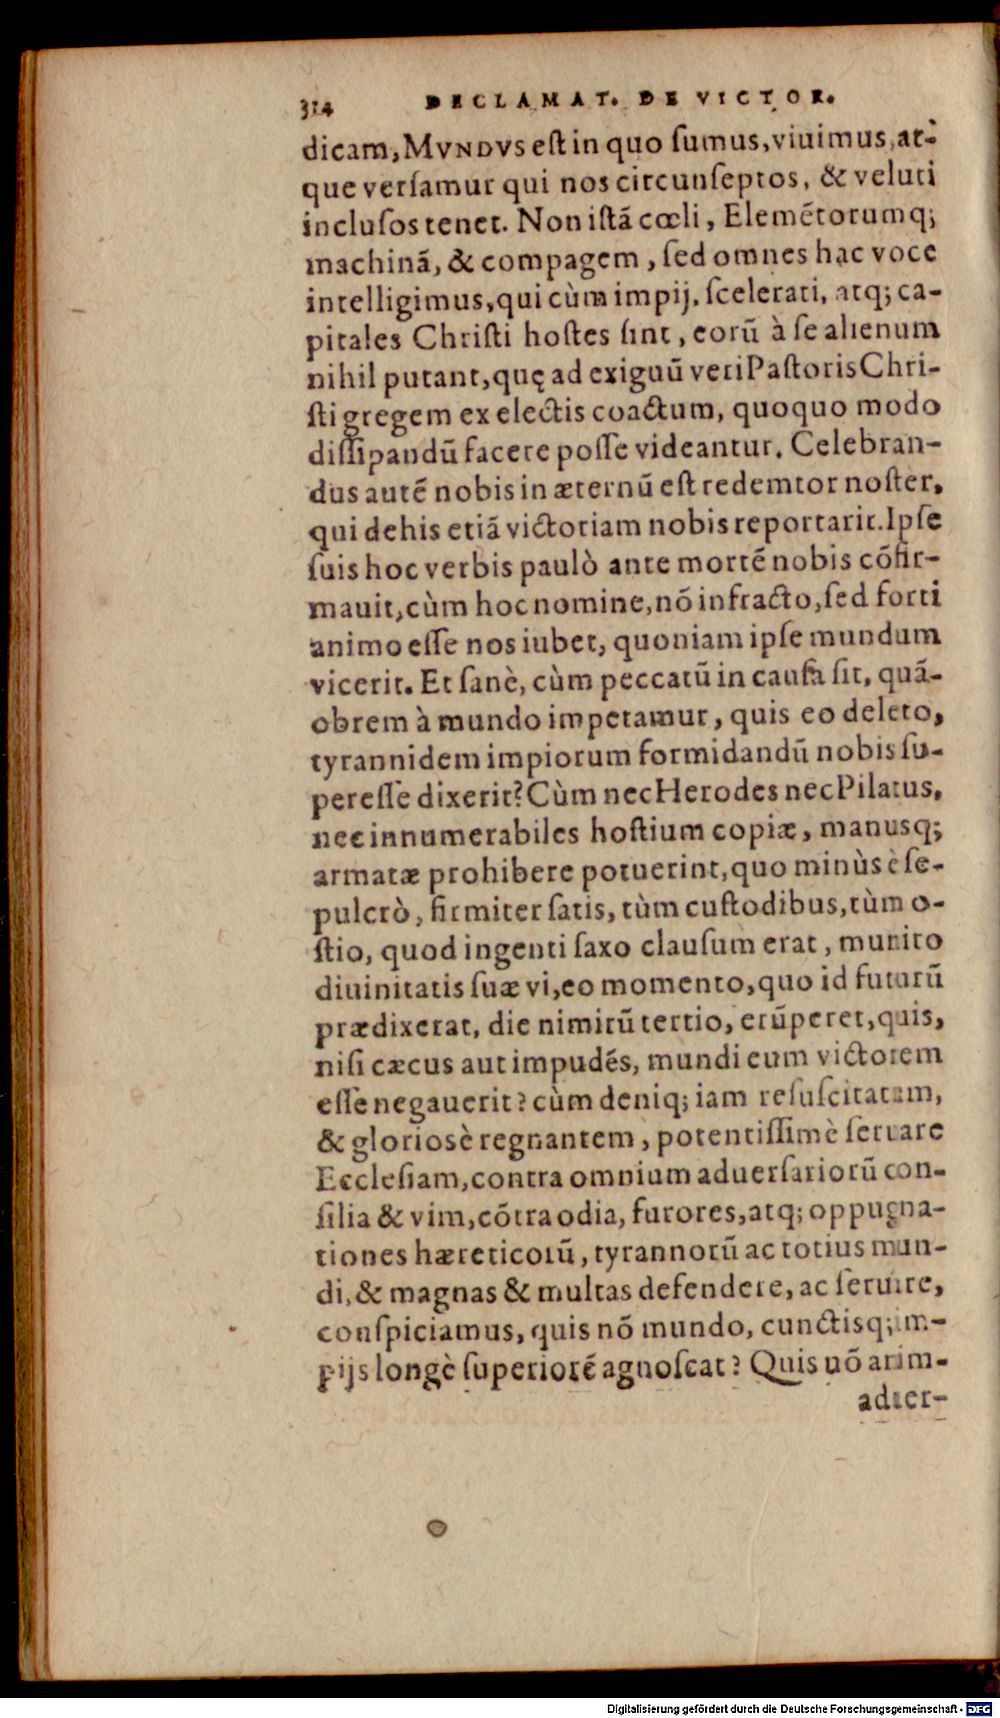 314 DECLAMAT. DE VICTOR.
dicam, MVNDVS eſt in quo ſumus, viuimus, at-
que verſamur qui nos circunſeptos, & veluti
incluſos tenet. Non iſtā cœli, Elemētorumq;
machinā, & compagem, ſed omnes hac voce
intelligimus, qui cùm impij, ſcelerati, atq; ca-
pitales Chriſti hoſtes ſint, eorū à ſe alienum
nihil putant, quę ad exiguū veri Paſtoris Chri-
ſti gregem ex electis coactum, quoquo modo
diſſipandū facere poſſe videantur. Celebran-
dus autē nobis in æternū eſt redemtor noſter,
qui de his etiā victoriam nobis reportarit. Ipſe
ſuis hoc verbis paulò ante mortē nobis cōfir-
mauit, cùm hoc nomine, nō infracto, ſed forti
animo eſſe nos iubet, quoniam ipſe mundum
vicerit. Et ſanè, cùm peccatū in cauſa ſit, quā-
obrem à mundo impetamur, quis eo deleto,
tyrannidem impiorum formidandū nobis ſu-
pereſſe dixerit? Cùm nec Herodes nec Pilatus,
nec innumerabiles hoſtium copiæ, manusq;
armatæ prohibere potuerint, quo minùs è ſe-
pulcrò, firmiter ſatis, tùm cuſtodibus, tùm o-
ſtio, quod ingenti ſaxo clauſum erat, munito
diuinitatis ſuæ vi, eo momento, quo id futurū
prædixerat, die nimirū tertio, erūperet, quis,
niſi cæcus aut impudēs, mundi eum victorem
eſſe negauerit? cùm deniq; iam reſuſcitatum,
& glorioſè regnantem, potentiſſimè ſeruare
Eccleſiam, contra omnium aduerſariorū con-
ſilia & vim, cōtra odia, furores, atq; oppugna-
tiones hæreticorū, tyrannorū ac totius mun-
di, & magnas & multas defendere, ac ſeruire,
conſpiciamus, quis nō mundo, cunctisq; im-
pijs longè ſuperiorē agnoſcat? Quis nō anim-
aduer-
Digitalisierung gefördert durch die Deutsche Forschungsgemeinschaft - DFG